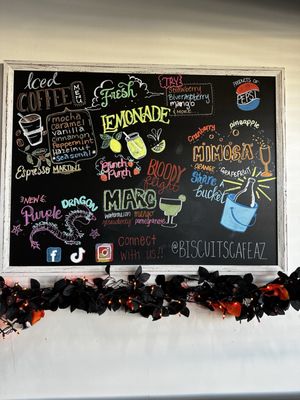 Iced
COFFEE
MENU
mocha
caramel
vanilla
cinnamon
Peppermint
hazelnut
Espresso MARTINI
Fresh
LEMONADE
TRY
Strawberry
mango
& MORE
PRODUCTS OF
PEPSI
Punch
cranberry
pineapple
MIMOSA
ORANGE
grapefruit
Share a
bucket
BLOODY
MARG
watermelon
mango
strawberry
pomegranate
NEW
Purple
DRAGON
connect
with us!!
@BISCUITSCAFEAZ